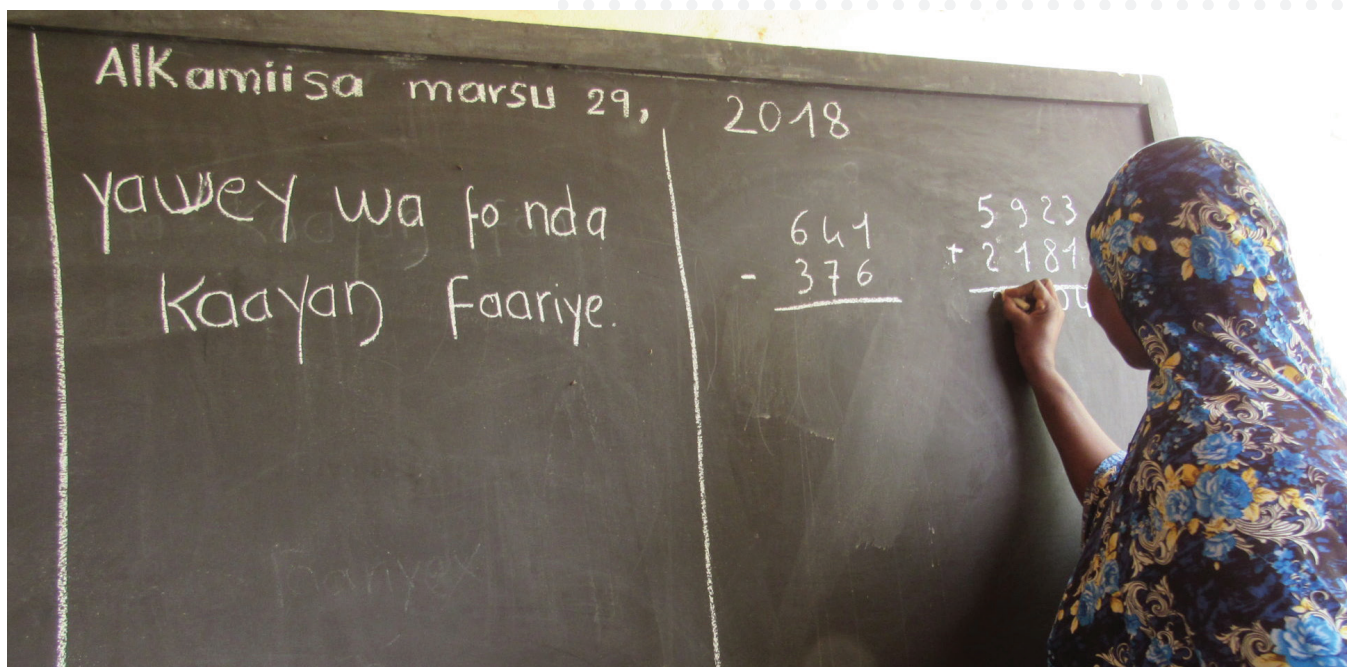 Alkamiisa marsu 29, 2018
yawey wa fo nda
Kaayaŋ Faariye.
641
- 376
5923
+ 2181